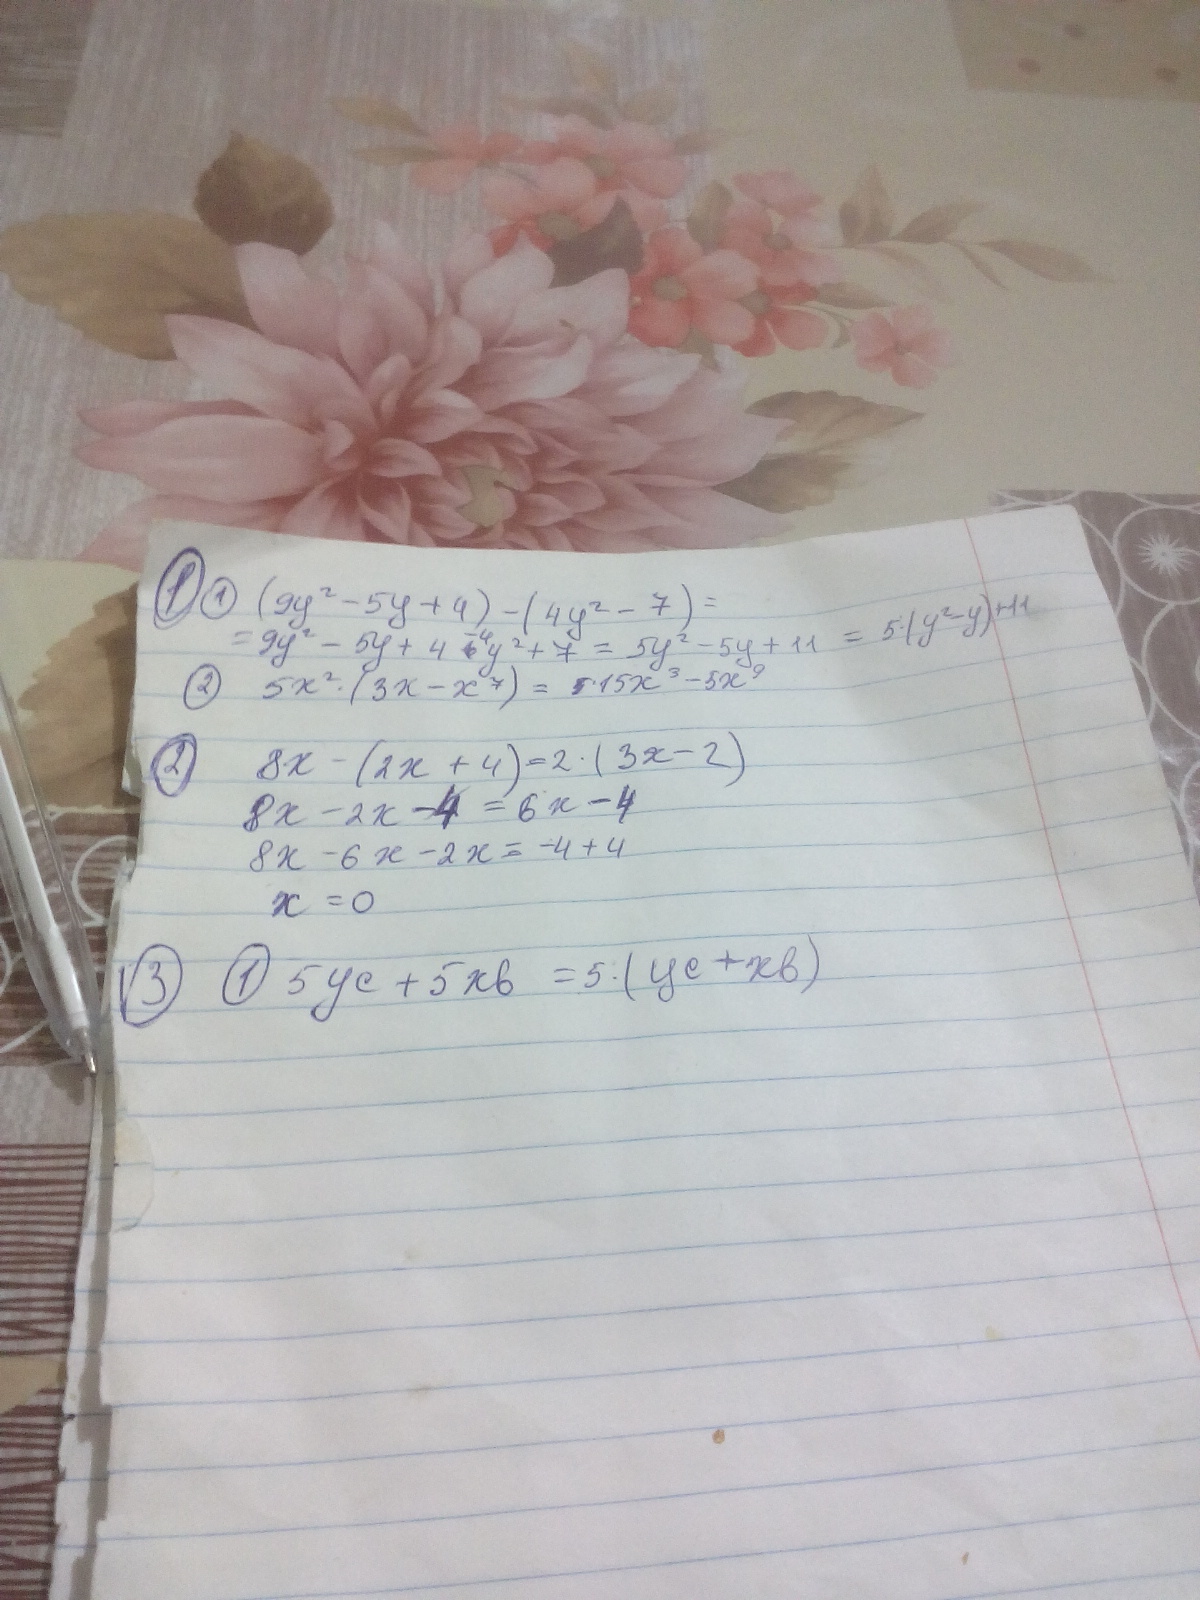 1 1 (9y² - 5y + 4) - (4y² - 7) =
= 9y² - 5y + 4 -4y² + 7 = 5y² - 5y + 11 = 5·(y² - y) + 11
2 5x²·(3x - x⁷) = 15x³ - 5x⁹
2 8x - (2x + 4) = 2·(3x - 2)
8x - 2x - 4 = 6x - 4
8x - 6x - 2x = -4 + 4
x = 0
3 1 5yc + 5xb = 5·(yc + xb)